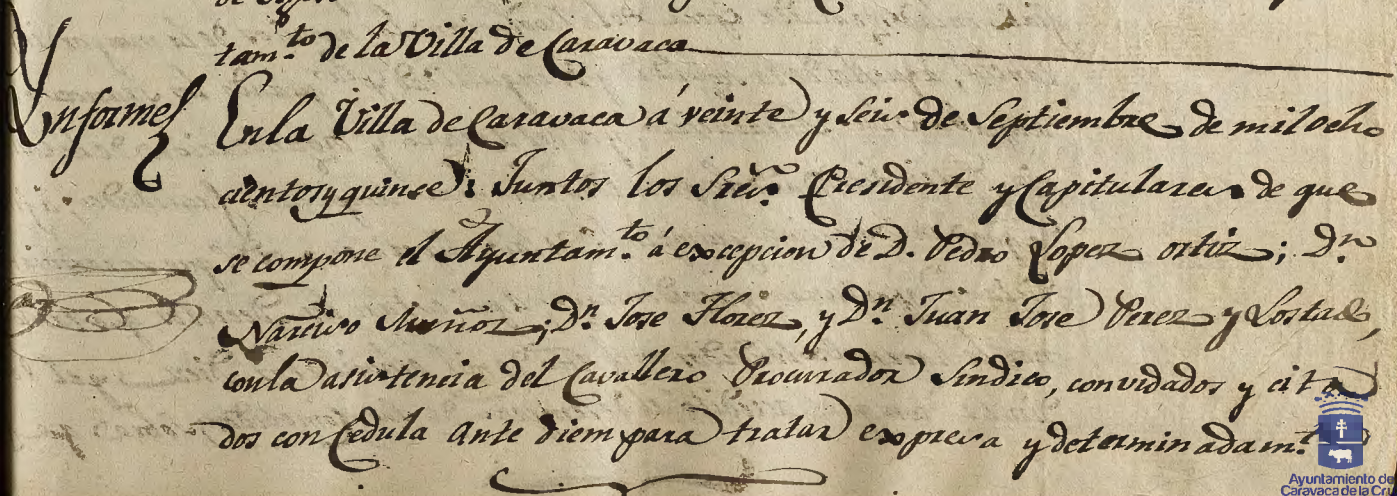 tam.to de la Villa de Caravaca
Informe
En la Villa de Caravaca á veinte y seis de Septiembre de mil ocho
cientos y quince: Juntos los Sres. Presidente y Capitulares de que
se compone el Ayuntam.to á excepcion de D. Pedro Lopez ortiz; Dn.
Narciso Muñoz; Dn. Jose Florez, y Dn. Juan Jose Perez y Lostal,
con la asistencia del Cavallero Procurador Sindico, convidados y cita
dos con Cedula ante diem para tratar expresa y determinadam.te
Ayuntamiento de
Caravaca de la Cru